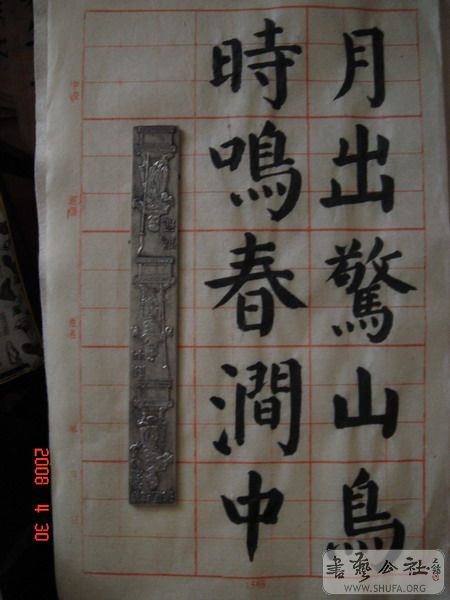 月出驚山鳥
時鳴春澗中
2008 4 30
書藝公社
WWW.SHUFA.ORG